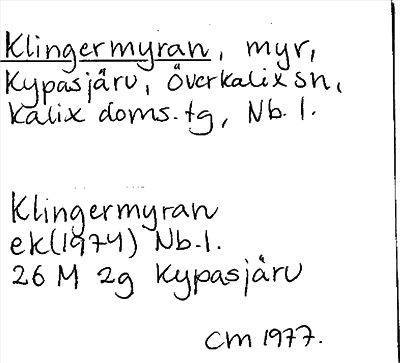 Klingermyran, myr,
Kypasjärv, Överkalix sn,
Kalix doms.tg, Nb.l.
Klingermyran
ek(1974) Nb.l.
26 M 2g Kypasjärv
CM 1977.